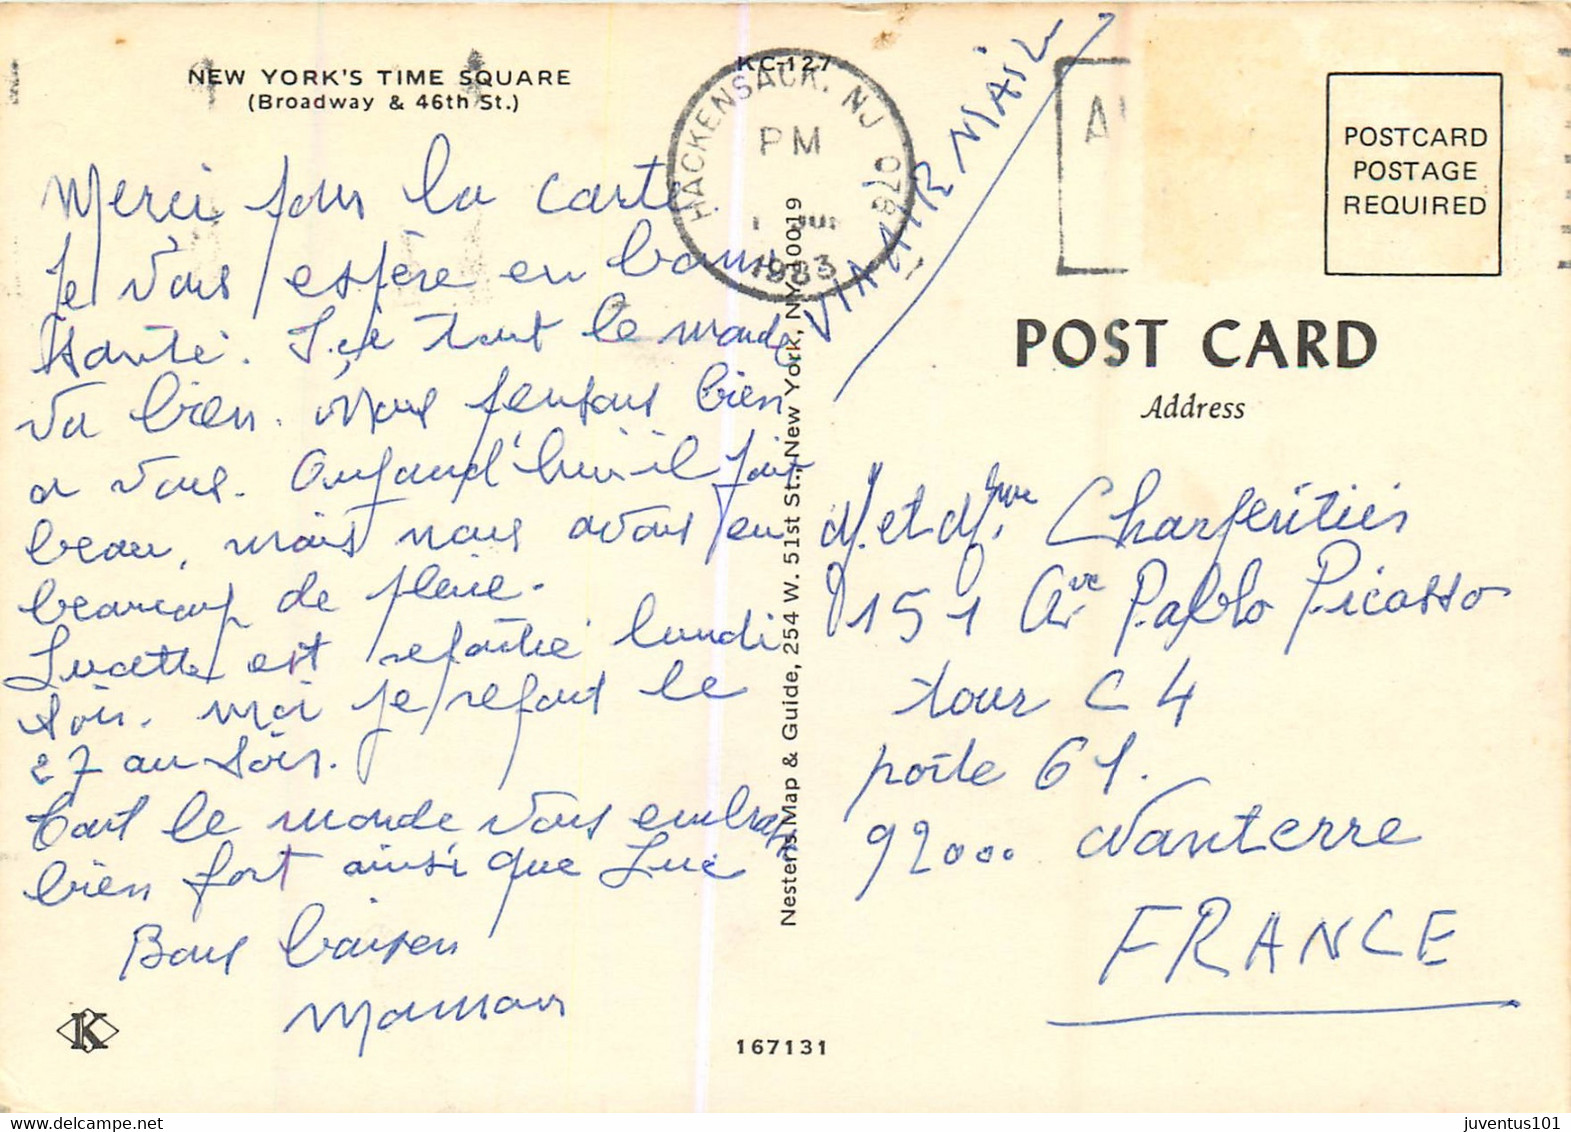 NEW YORK'S TIME SQUARE
(Broadway & 46th St.)
Merci pour la carte
Je vous espère en bonne
Santé. Ici tout le monde
va bien. Nous pensons bien
a vous. Aujourd'hui il fait
beau, mais nous avons eu
beaucoup de pluie.
Lucette est repartie lundi
soir. moi je repart le
27 au soir.
Tout le monde vous embrasse
bien fort ainsi que Luc
Bons baisers
Maman
K
KC-127
HACKENSACK, NJ 078
PM
1983
VIA AIR MAIL
Nester's Map & Guide, 254 W. 51st St., New York, NY 10019
167131
POSTCARD
POSTAGE
REQUIRED
POST CARD
Address
M. et Mme Charpentier
151 Ave Pablo Picasso
tour C 4
porte 61.
92000 Nanterre
FRANCE
juventus101